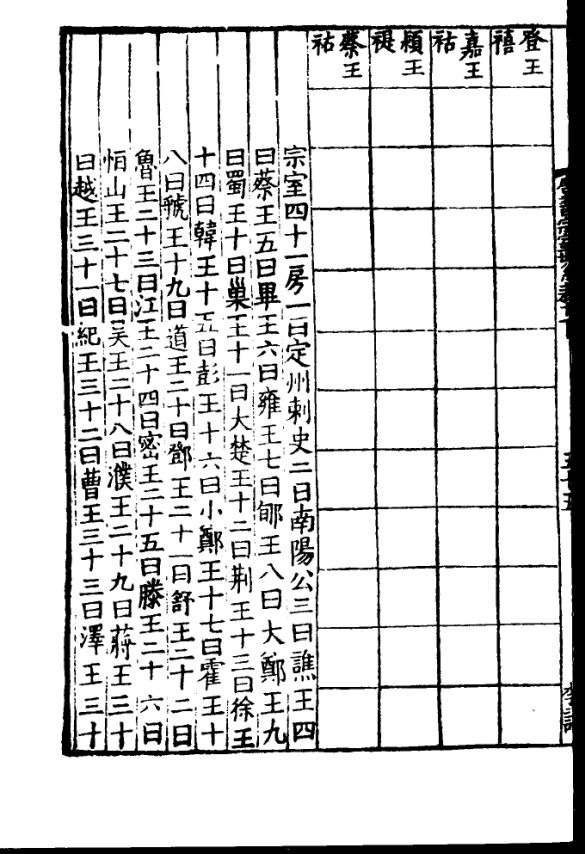 登王
禧
嘉王
祜
穎王
禔
蔡王
祐
宗室四十一房一曰定州刺史二曰南陽公三曰譙王四
曰蔡王五曰畢王六曰雍王七曰郇王八曰大鄭王九
曰蜀王十曰巢王十一曰大楚王十二曰荆王十三曰徐王
十四曰韓王十五曰彭王十六曰小鄭王十七曰霍王十
八曰虢王十九曰道王二十曰鄧王二十一曰舒王二十二曰
魯王二十三曰江王二十四曰密王二十五曰滕王二十六曰
恒山王二十七曰吴王二十八曰濮王二十九曰蔣王三十
曰越王三十一曰紀王三十二曰曹王三十三曰澤王三十